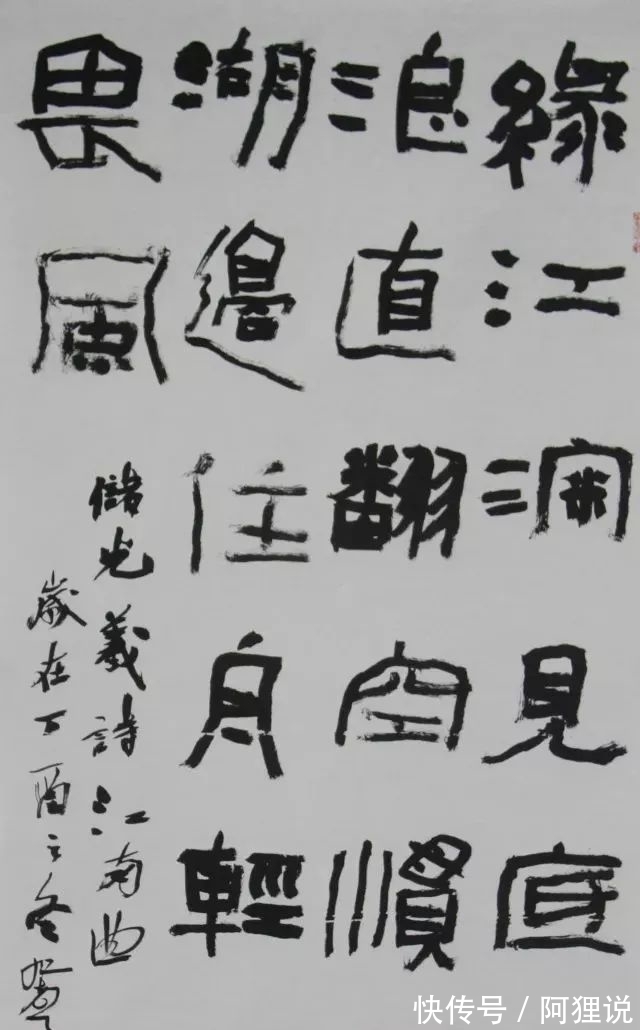 緣江深見底
浪直翻空慣
湖邊住舟輕
畏風
儲光羲詩江南曲
歲在丁酉之冬
快传号 / 阿狸说